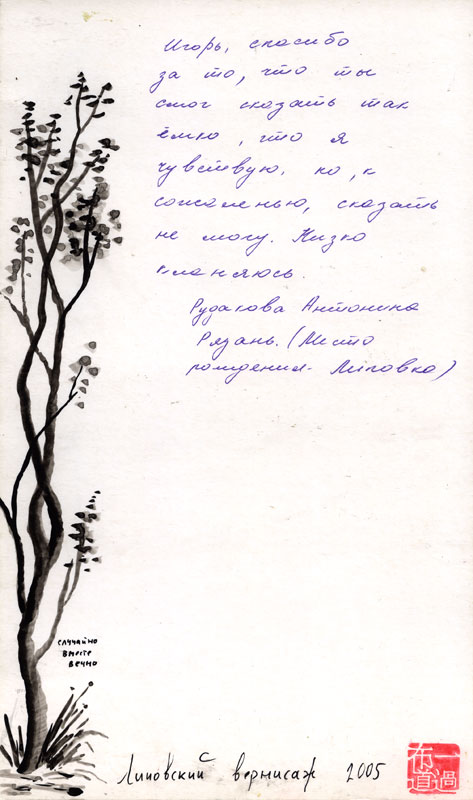 Игорь, спасибо
за то, что ты
смог сказать так
ёмко, что я
чувствую, но, к
сожаленью, сказать
не могу. Низко
кланяюсь.
Рудакова Антонина
Рязань. (Место
рождения - Липовка)
случайно
вместе
вечно
Липовский вернисаж 2005